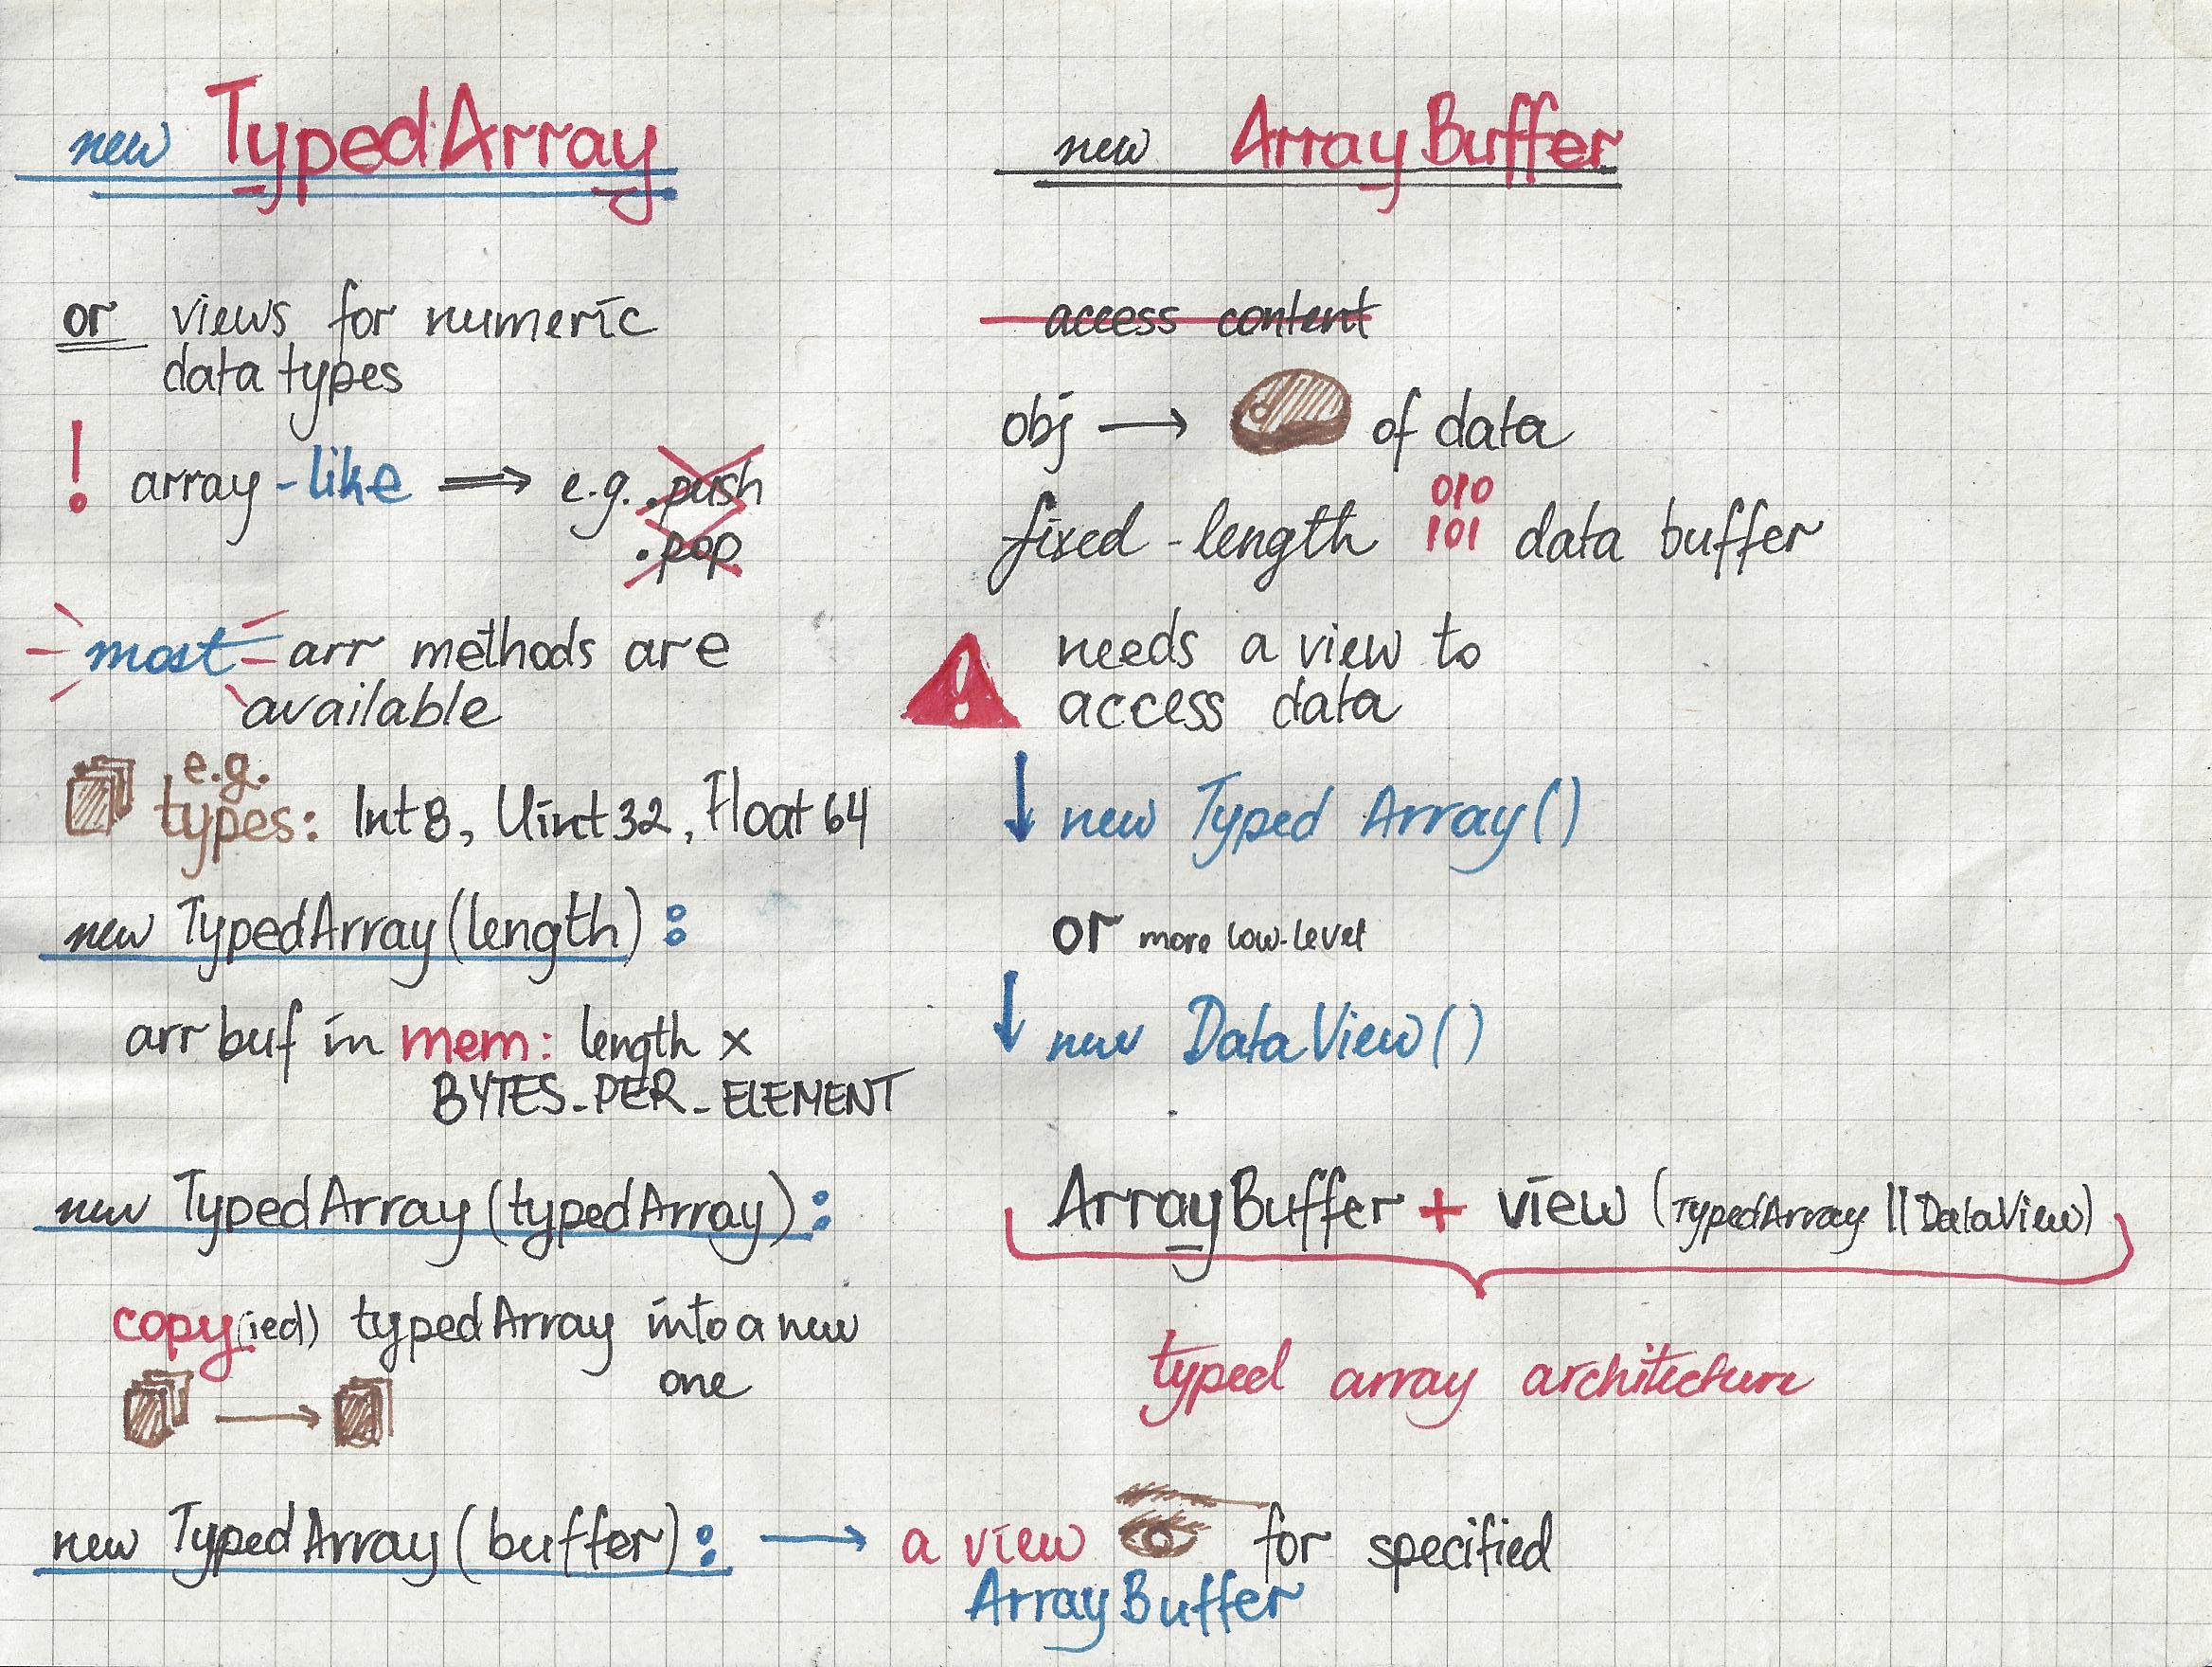 new TypedArray
or views for numeric
data types
! array-like ⟹ e.g. .push
.pop
most arr methods are
available
e.g.
types: Int8, Uint32, Float64
new TypedArray(length):
arr buf in mem: length ×
BYTES_PER_ELEMENT
new TypedArray(typedArray):
copy(ied) typedArray into a new
one
new TypedArray(buffer): → a view for specified
ArrayBuffer
new ArrayBuffer
access content
obj → of data
010
fixed-length 101 data buffer
! needs a view to
access data
↓ new Typed Array()
or more low-level
↓ new DataView()
ArrayBuffer + view (TypedArray || DataView)
typed array architecture